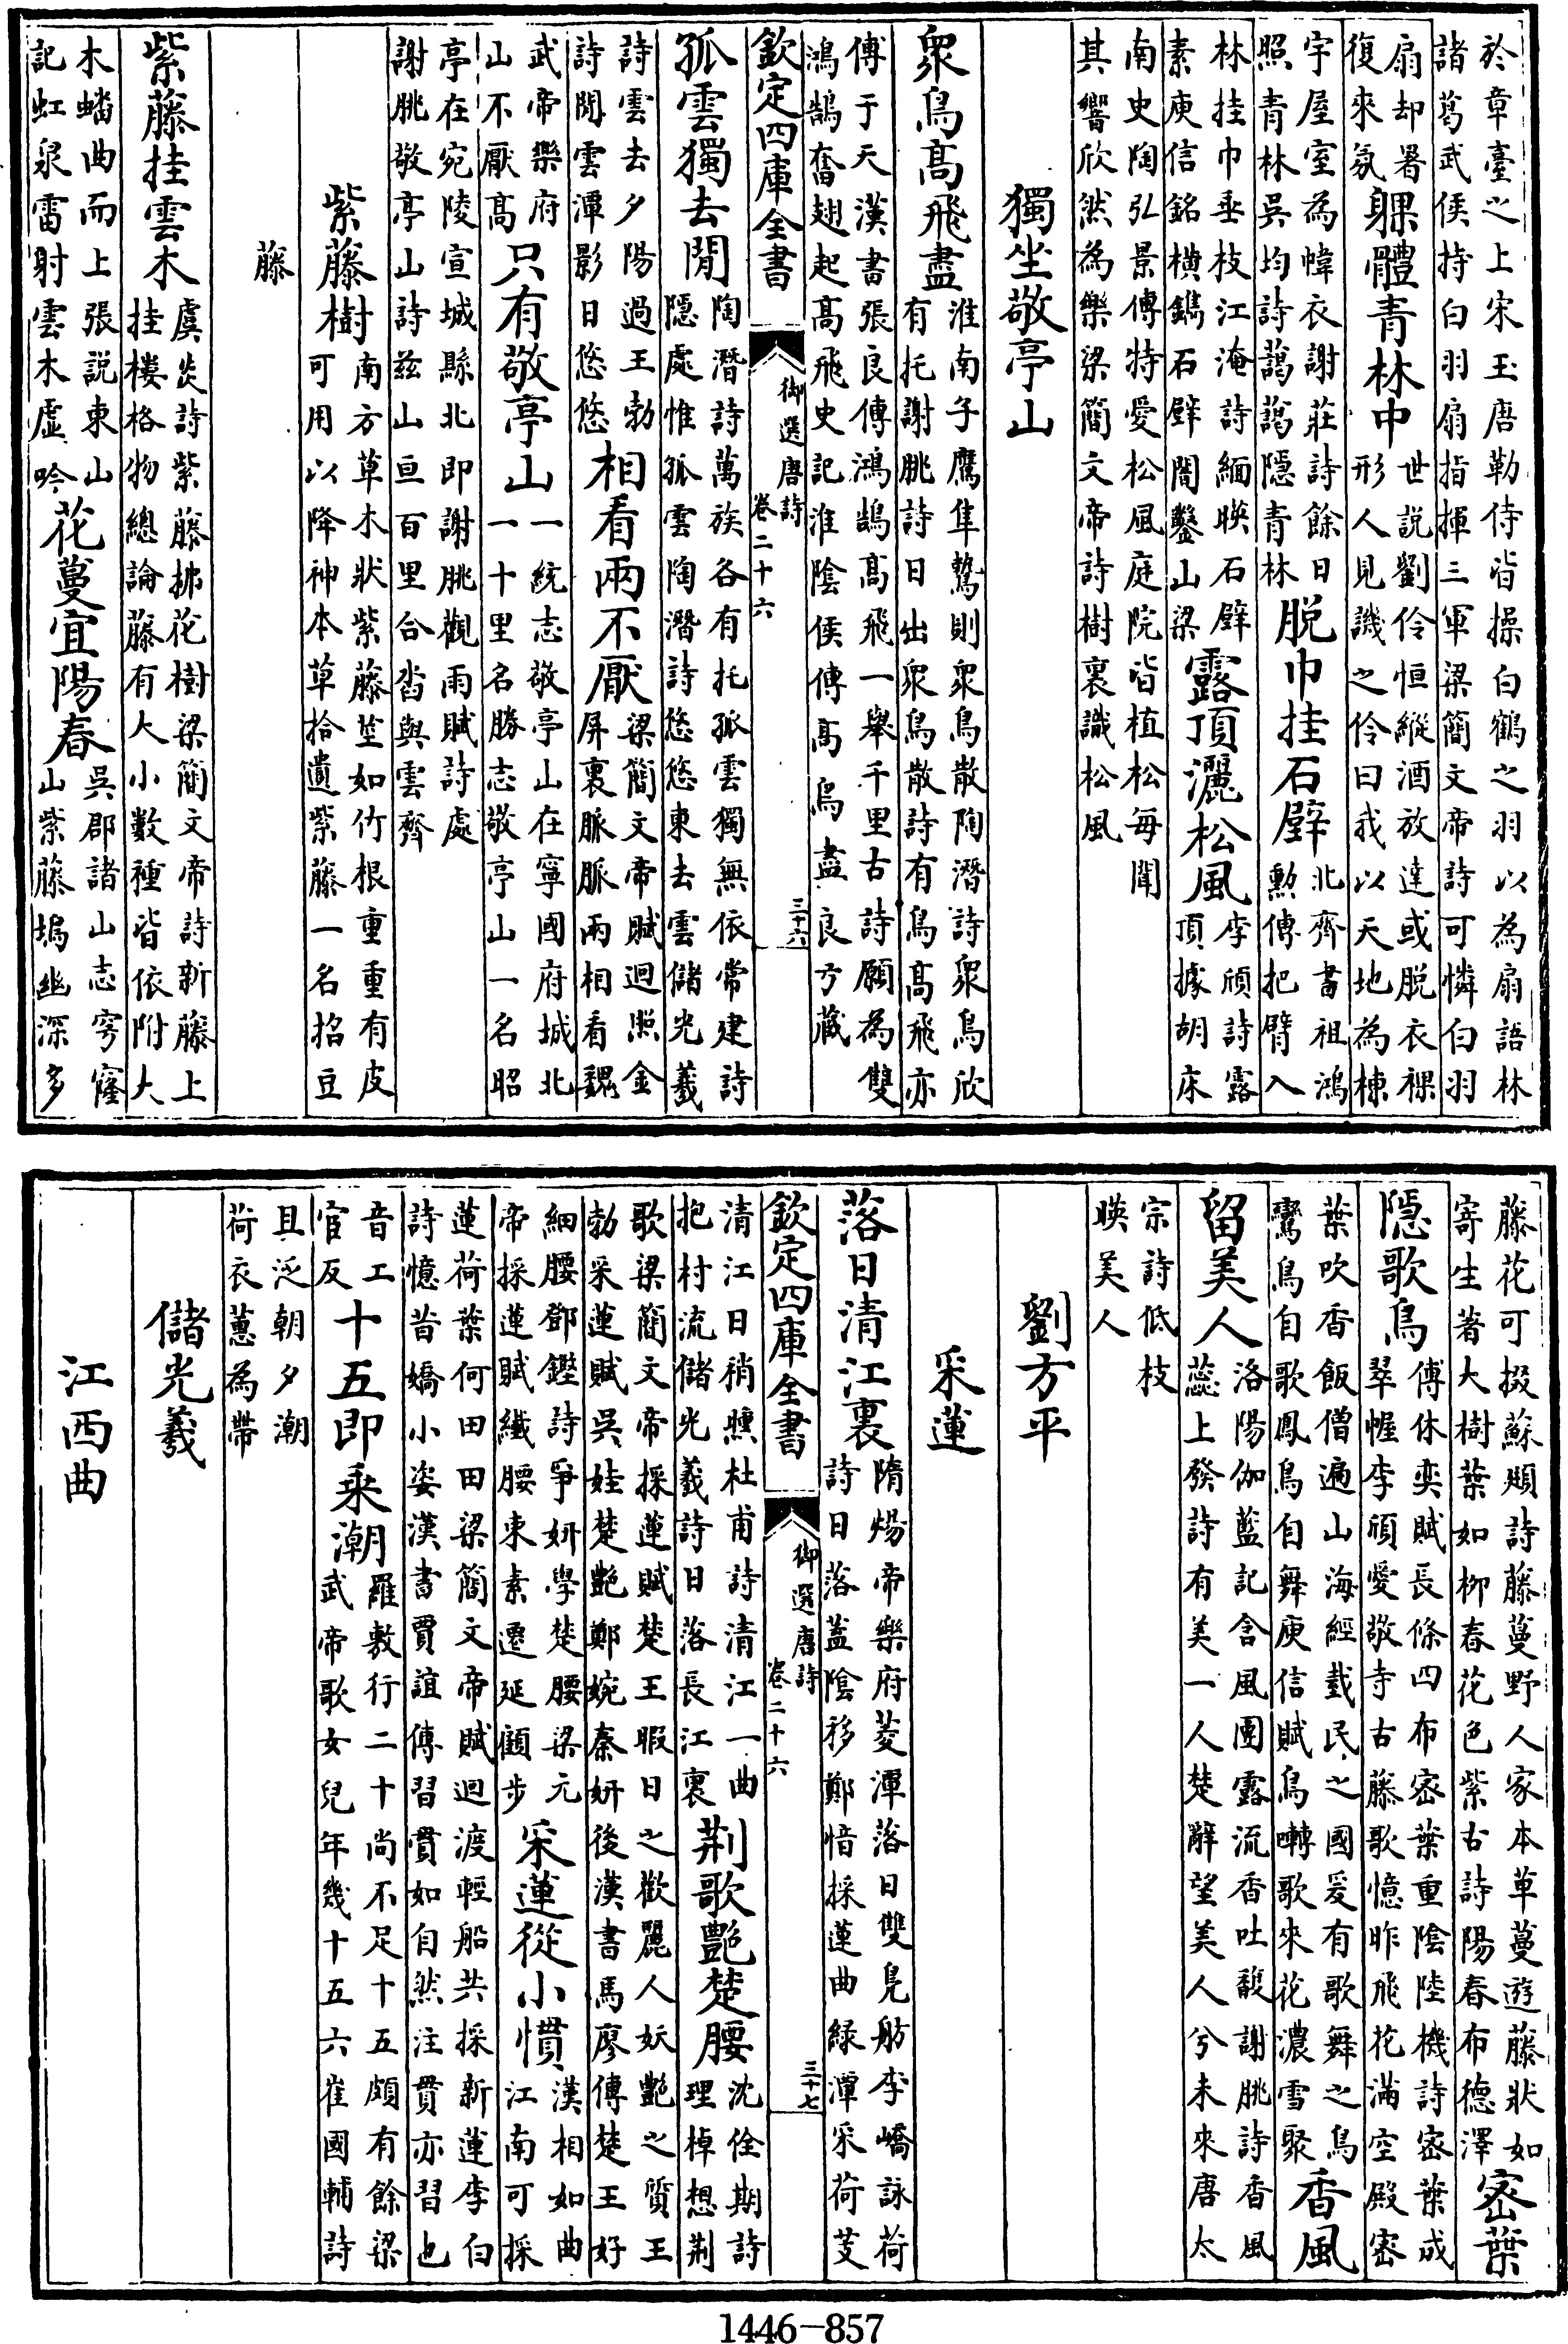 於章臺之上宋玉唐勒侍皆操白鶴之羽以為扇語林
諸葛武侯持白羽扇指揮三軍梁簡文帝詩可憐白羽
扇却暑
復來氛
躶體青林中
世説劉伶恒縱酒放達或脱衣裸
形人見譏之伶曰我以天地為棟
宇屋室為幃衣謝莊詩餘日
照青林吳均詩藹藹隱青林
脱巾挂石壁
北齊書祖鴻
勲傳把臂入
林挂巾垂枝江淹詩緬暎石壁
素庾信銘横鐫石壁闇鑿山梁
露頂灑松風
李頎詩露
頂據胡床
南史陶弘景傳特愛松風庭院皆植松每聞
其響欣然為樂梁簡文帝詩樹裏識松風
獨坐敬亭山
衆鳥高飛盡
淮南子鷹隼鷙則衆鳥散陶潛詩衆鳥欣
有托謝朓詩日出衆鳥散詩有鳥高飛亦
傅于天漢書張良傳鴻鵠高飛一舉千里古詩願為雙
鴻鵠奮翅起高飛史記淮隂侯傳高鳥盡良弓藏
欽定四庫全書
御選唐詩
卷二十六
三十六
孤雲獨去閒
陶潛詩萬族各有托孤雲獨無依常建詩
隱處惟孤雲陶潛詩悠悠東去雲儲光羲
詩雲去夕陽過王勃
詩閒雲潭影日悠悠
相看兩不厭
梁簡文帝賦迴照金
屏裏脈脈兩相看魏
武帝樂府
山不厭高
只有敬亭山
一統志敬亭山在寧國府城北
一十里名勝志敬亭山一名昭
亭在宛陵宣城縣北即謝朓觀雨賦詩處
謝朓敬亭山詩兹山亘百里合沓與雲齊
紫藤樹
南方草木狀紫藤莖如竹根重重有皮
可用以降神本草拾遺紫藤一名招豆
藤
紫藤挂雲木
虞炎詩紫藤拂花樹梁簡文帝詩新藤上
挂樓格物總論藤有大小數種皆依附大
木蟠曲而上張説東山
記虹泉雷射雲木虛吟
花蔓宜陽春
吳郡諸山志穹窿
山紫藤塢幽深多
藤花可掇蘇頲詩藤蔓野人家本草蔓遊藤狀如
寄生著大樹葉如柳春花色紫古詩陽春布德澤
密葉
隠歌鳥
傅休奕賦長條四布密葉重陰陸機詩密葉成
翠幄李頎愛敬寺古藤歌憶昨飛花滿空殿密
葉吹香飯僧遍山海經臷民之國爰有歌舞之鳥
鸞鳥自歌鳳鳥自舞庾信賦鳥囀歌來花濃雪聚
香風
留美人
洛陽伽藍記含風團露流香吐馥謝朓詩香風
蕊上發詩有美一人楚辭望美人兮未來唐太
宗詩低枝
暎美人
劉方平
采蓮
落日清江裏
隋煬帝樂府菱潭落日雙鳧舫李嶠詠荷
詩日落蓋隂移鄭愔採蓮曲緑潭采荷芰
欽定四庫全書
御選唐詩
卷二十六
三十七
清江日稍曛杜甫詩清江一曲
抱村流儲光羲詩日落長江裏
荆歌艷楚腰
沈佺期詩
理棹想荆
歌梁簡文帝採蓮賦楚王暇日之歡麗人妖艷之質王
勃采蓮賦吳娃楚艷鄭婉秦妍後漢書馬廖傳楚王好
細腰鄧鏗詩爭妍學楚腰梁元
帝採蓮賦纖腰束素遷延顧步
采蓮從小慣
漢相如曲
江南可採
蓮荷葉何田田梁簡文帝賦迴渡輕船共採新蓮李白
詩憶昔嬌小姿漢書賈誼傳習貫如自然注貫亦習也
音工
官反
十五即乘潮
羅敷行二十尚不足十五頗有餘梁
武帝歌女兒年幾十五六崔國輔詩
且泛朝夕潮
荷衣蕙為帶
儲光羲
江西曲
1446-857